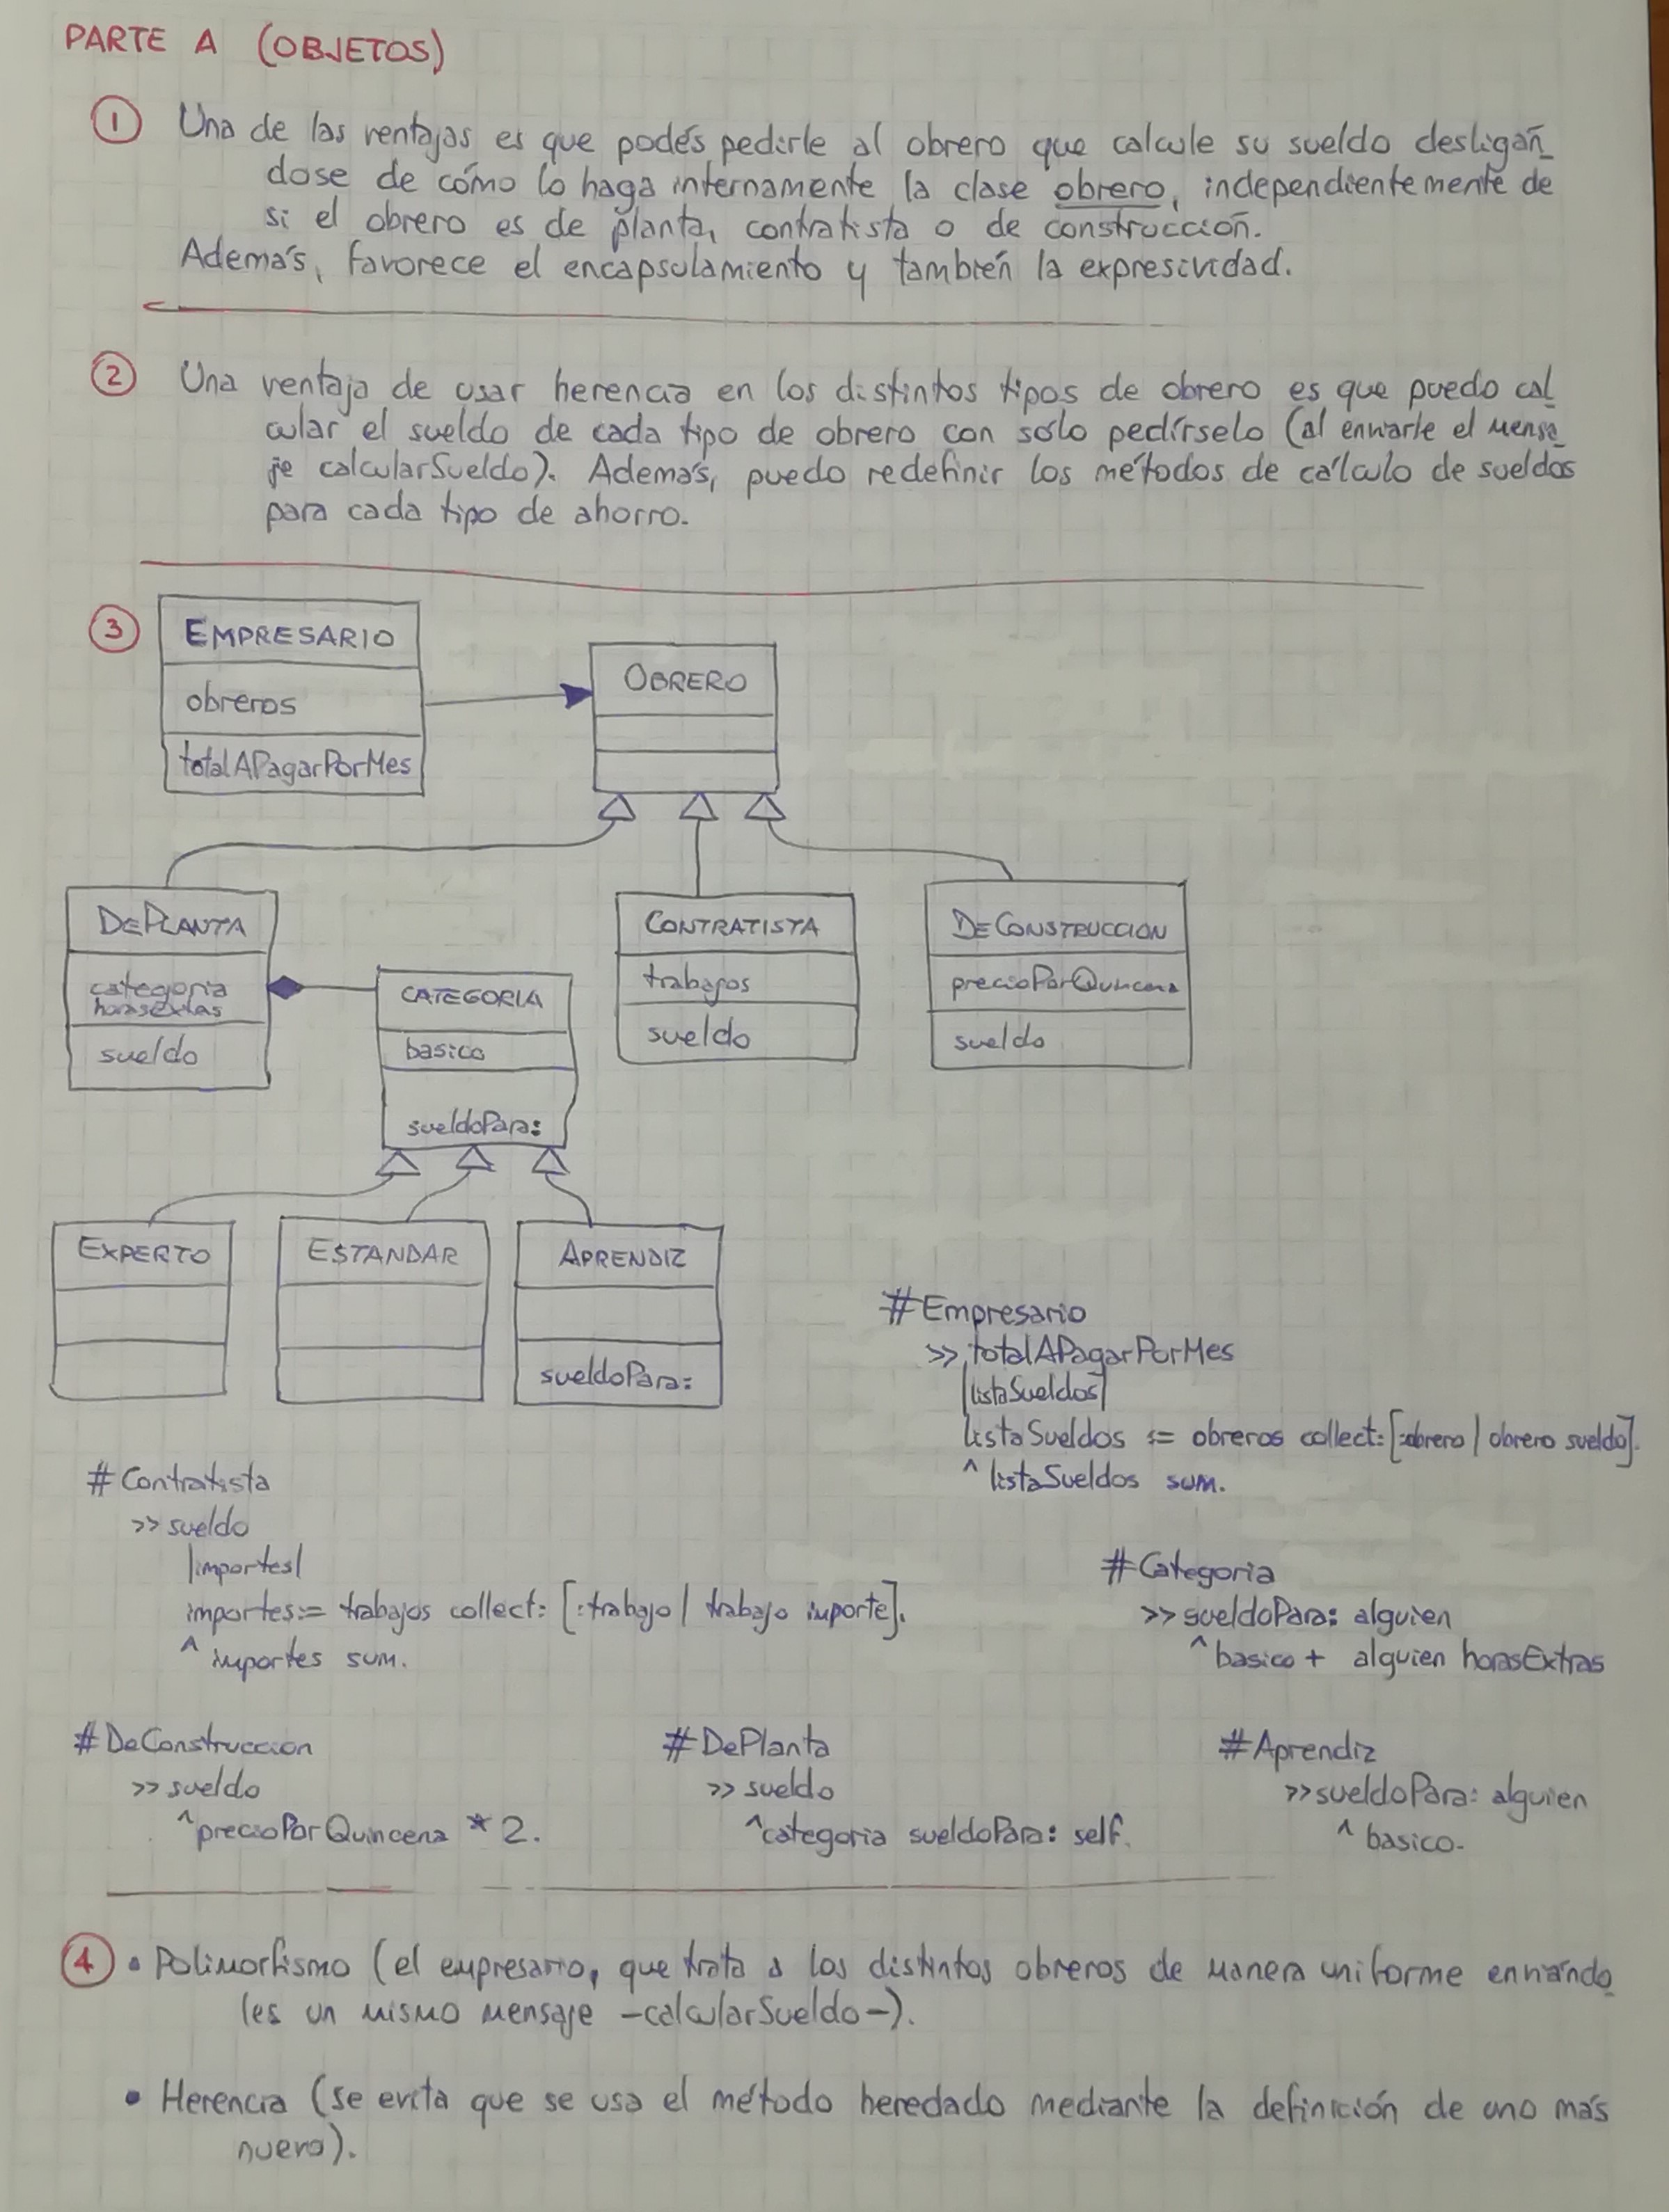 PARTE A (OBJETOS)
1 Una de las ventajas es que podés pedirle al obrero que calcule su sueldo desligán_
dose de cómo lo haga internamente la clase obrero, independientemente de
si el obrero es de planta, contratista o de construcción.
Además, favorece el encapsulamiento y también la expresividad.
2 Una ventaja de usar herencia en los distintos tipos de obrero es que puedo cal_
cular el sueldo de cada tipo de obrero con sólo pedírselo (al enviarle el mensa_
je calcularSueldo). Además, puedo redefinir los métodos de cálculo de sueldos
para cada tipo de ahorro.
3
EMPRESARIO
obreros
totalAPagarPorMes
OBRERO
DEPLANTA
categoria
horasExtras
sueldo
CATEGORIA
basico
sueldoPara:
CONTRATISTA
trabajos
sueldo
DECONSTRUCCION
precioPorQuincena
sueldo
EXPERTO
ESTANDAR
APRENDIZ
sueldoPara:
#Empresario
>> totalAPagarPorMes
|listaSueldos|
listaSueldos := obreros collect: [:obrero | obrero sueldo].
^ listaSueldos sum.
#Contratista
>> sueldo
|importes|
importes:= trabajos collect: [:trabajo | trabajo importe].
^ importes sum.
#Categoria
>> sueldoPara: alguien
^ basico + alguien horasExtras
#DeConstruccion
>> sueldo
^precioPorQuincena * 2.
#DePlanta
>> sueldo
^categoria sueldoPara: self.
#Aprendiz
>> sueldoPara: alguien
^ basico.
4 • Polimorfismo (el empresario, que trata a los distintos obreros de manera uniforme enviando_
les un mismo mensaje -calcularSueldo-).
• Herencia (se evita que se usa el método heredado mediante la definición de uno más
nuevo).